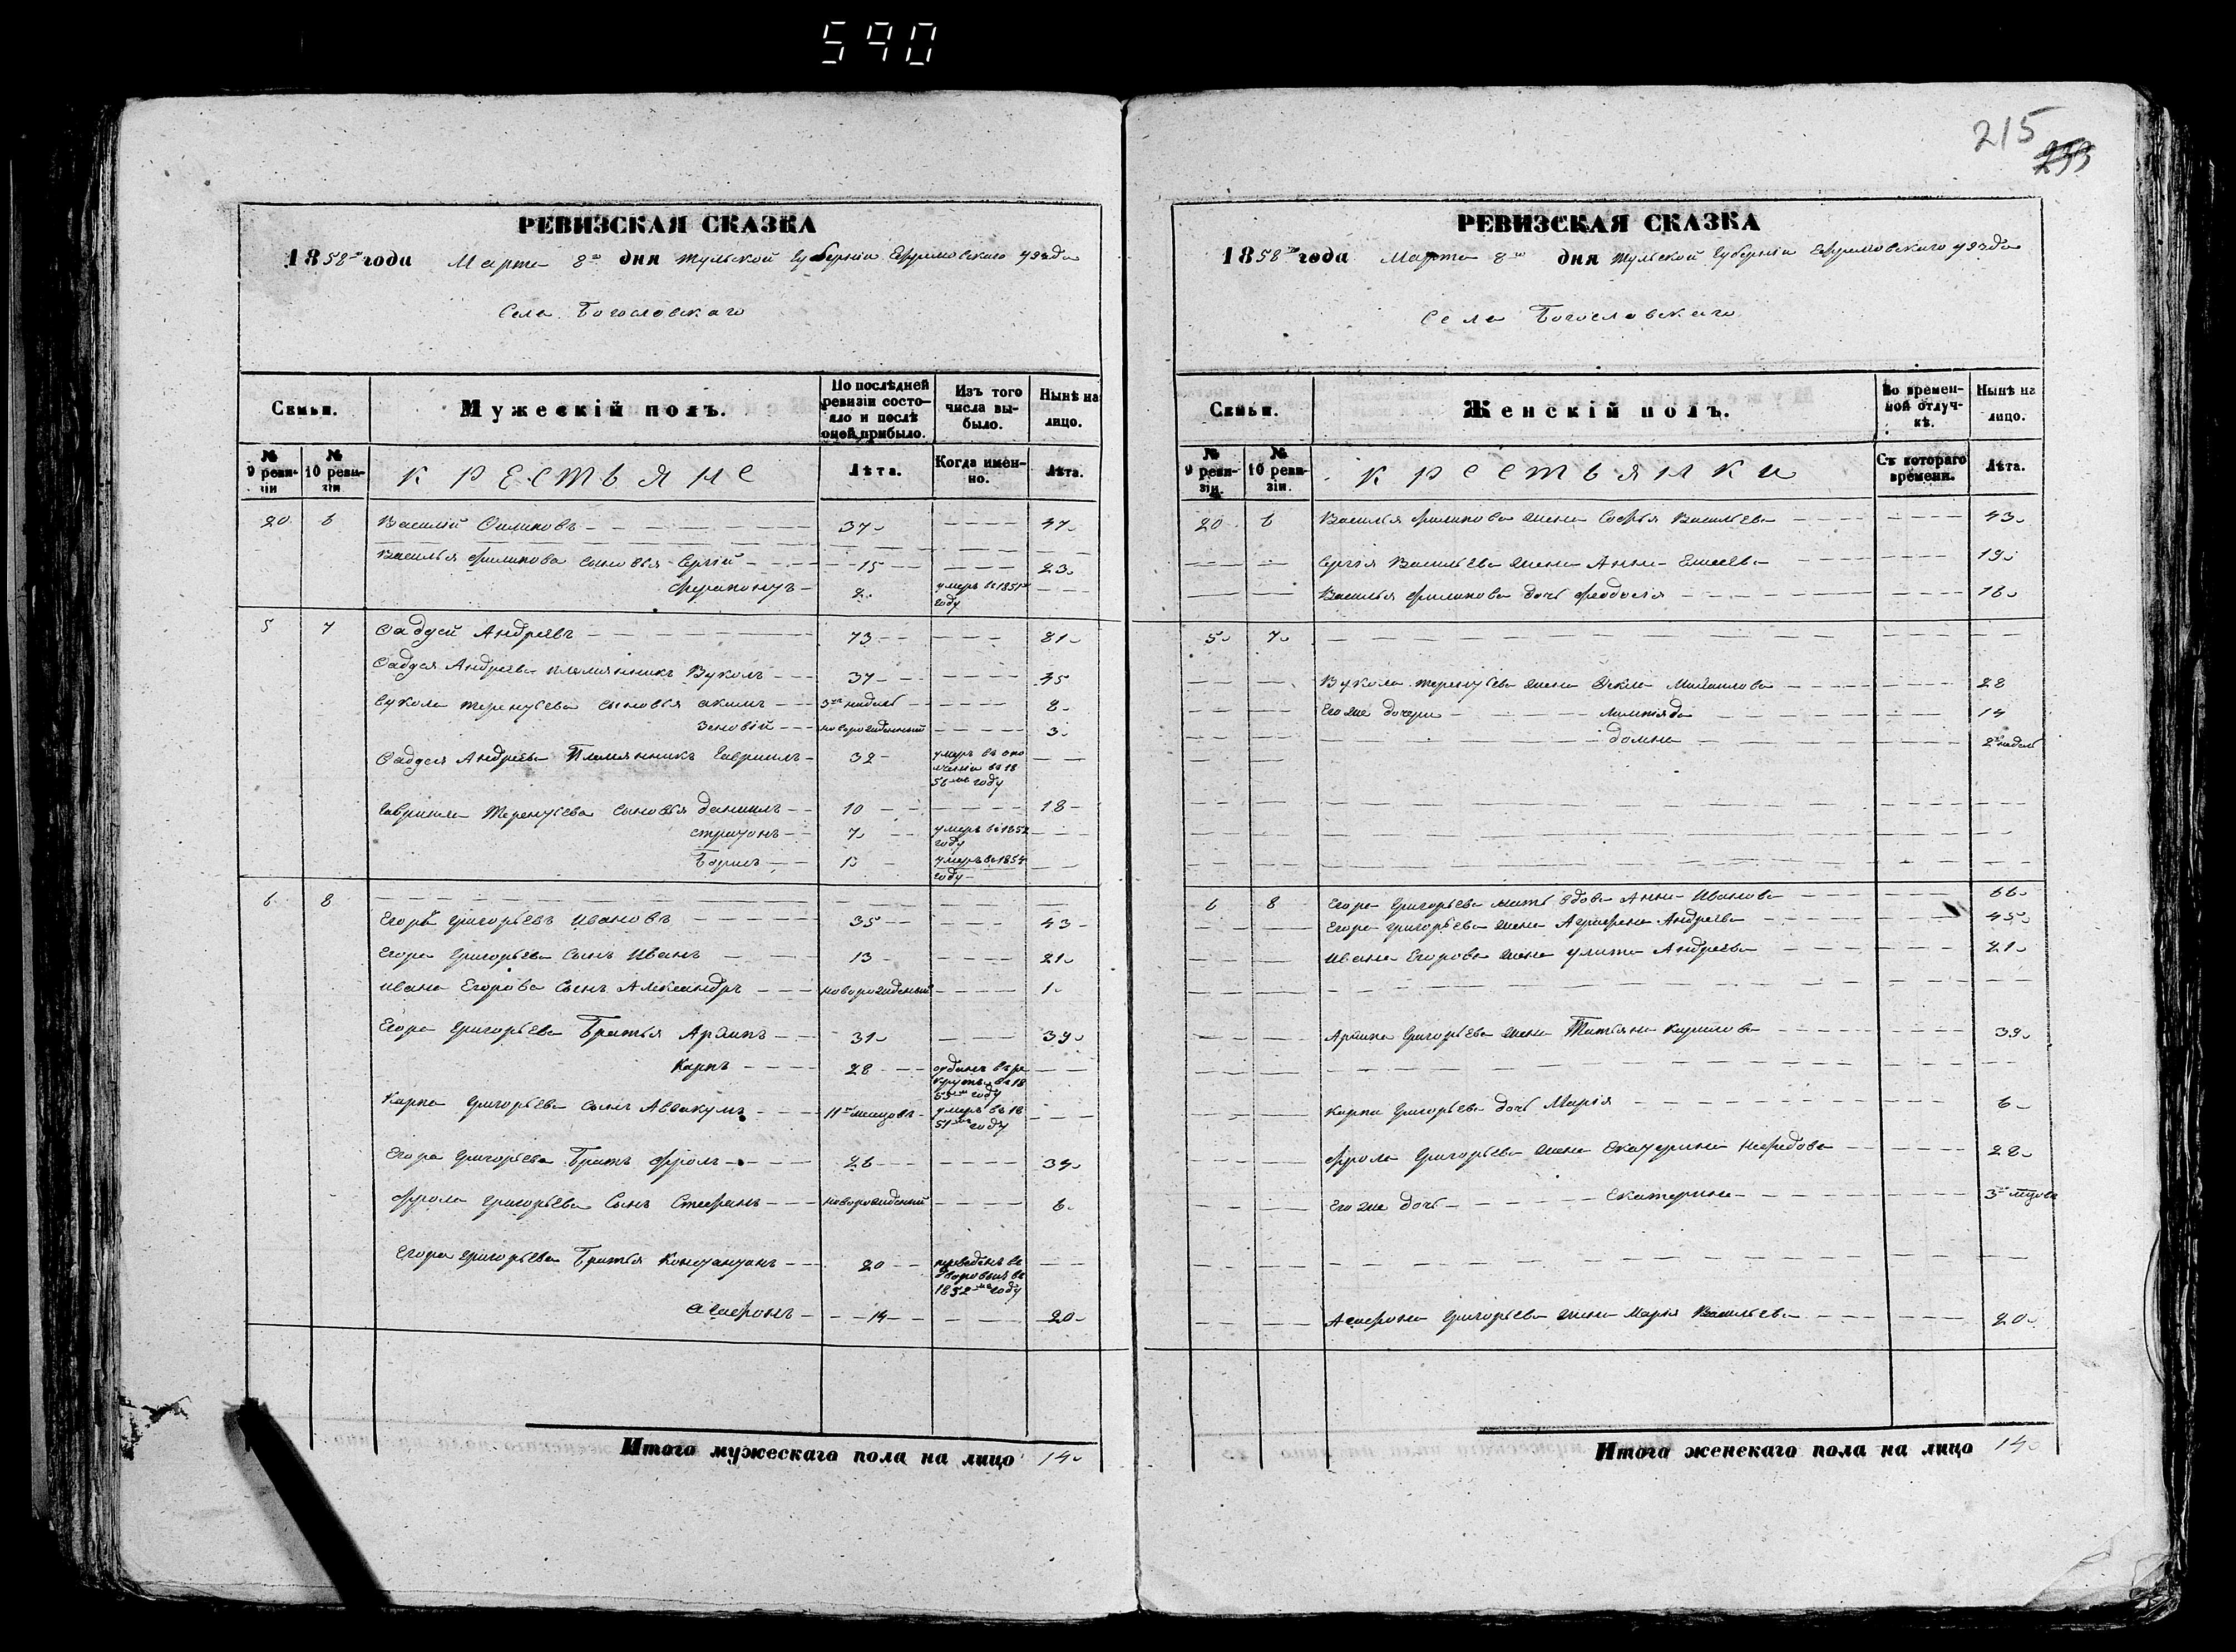 590
215
253
РЕВИЗСКАЯ СКАЗКА
1858го года Марта 8го дня Тульской Губернiи Ефремовскаго уѣзда
Села Богословскаго
Семьи.
Мужескiй полъ.
По послѣдней ревизiи состояло и послѣ оной прибыло.
Изъ того числа выбыло.
Нынѣ на лицо.
№ 9 ревизiи
№ 10 ревизiи
Крестьяне
Лѣта.
Когда именно.
Лѣта.
20 6 Василiй Филиповъ 37 47
Василья Филипова сыновья Сергiй 15 23
Ферапонтъ 2 умеръ въ 1851 году
5 7 Фадѣй Андреевъ 73 81
Фадея Андреева племянникъ Вуколъ 37 45
Вукола Терентьева сыновья Акимъ 3хъ недѣль 8
Зеновiй новорожденный 3
Фадея Андреева Племянникъ Гавриилъ 32 умеръ въ ополченiи въ 1856мъ году
Гавриила Терентьева сыновья Данiилъ 10 18
Трифонъ 7 умеръ въ 1852 году
Борисъ умеръ въ 1854 году
6 8
Егоръ Григорьевъ Ивановъ 35 43
Егора Григорьева сынъ Иванъ 13 21
Ивана Егорова Сынъ Александръ новорожденный 1
Егора Григорьева Братья Архипъ 31 39
Карпъ 28 отданъ въ рекруты въ 1855мъ году
Карпа Григорьева сынъ Аввакумъ 11ти месяцовъ умеръ въ 1851мъ году
Егора Григорьева Братъ Фролъ 26 34
Фрола Григорьева Сынъ Стефанъ новорожденный 6
Егора Григорьева Братья Константинъ 20 переведенъ въ дворовыя въ 1852мъ году
Агафонъ 14 20
Итого мужескаго пола на лицо 14
РЕВИЗСКАЯ СКАЗКА
1858го года Марта 8го дня Тульской Губернiи Ефремовскаго уѣзда
Села Богословскаго
Семьи.
Женскiй полъ.
Во временной отлучкѣ.
Нынѣ на лицо.
№ 9 ревизiи.
№ 10 ревизiи.
Крестьянки
Съ котораго времени.
Лѣта.
20 6 Василья Филипова жена Софья Васильева 43
Сергiя Васильева жена Анна Елисеева 19
Василья Филипова дочь Феодосiя 16
5 7
Вукола Терентьева жена Фекла Михаилова 28
Его же дочери Лимпiяда 14
Домна 2хъ недѣль
6 8 Егора Григорьева мать вдова Анна Иванова 66
Егора Григорьева жена Аграфена Андреева 45
Ивана Егорова жена Улита Андреева 21
Архипа Григорьева жена Татьяна Кирилова 39
Карпа Григорьева дочь Марiя 6
Фрола Григорьева жена Екатерина Нефедова 28
Его же дочь Екатерина
Агафона Григорьева жена Марiя Васильева 20
Итого женскаго пола на лицо 14